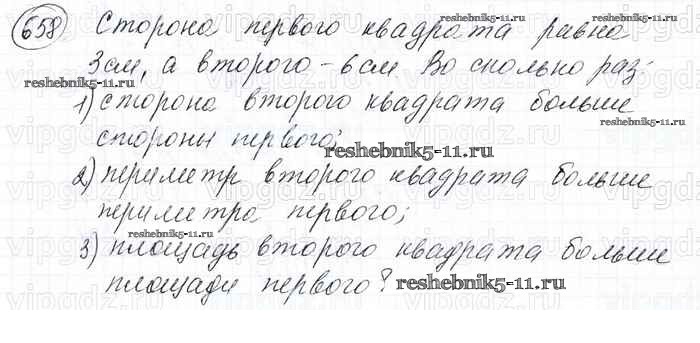 658 Сторона первого квадрата равна
reshebnik5-11.ru
3см, а второго – 6 см. Во сколько раз:
reshebnik5-11.ru
1) сторона второго квадрата больше
reshebnik5-11.ru
стороны первого;
reshebnik5-11.ru
2) периметр второго квадрата больше
периметра первого;
reshebnik5-11.ru
reshebnik5-11.ru
3) площадь второго квадрата больше
площади первого?
reshebnik5-11.ru